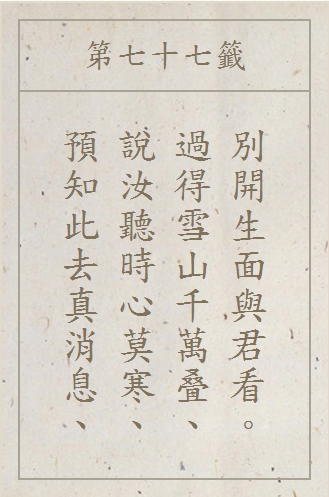 第七十七籤
預知此去真消息、
說汝聽時心莫寒、
過得雪山千萬叠、
別開生面與君看。